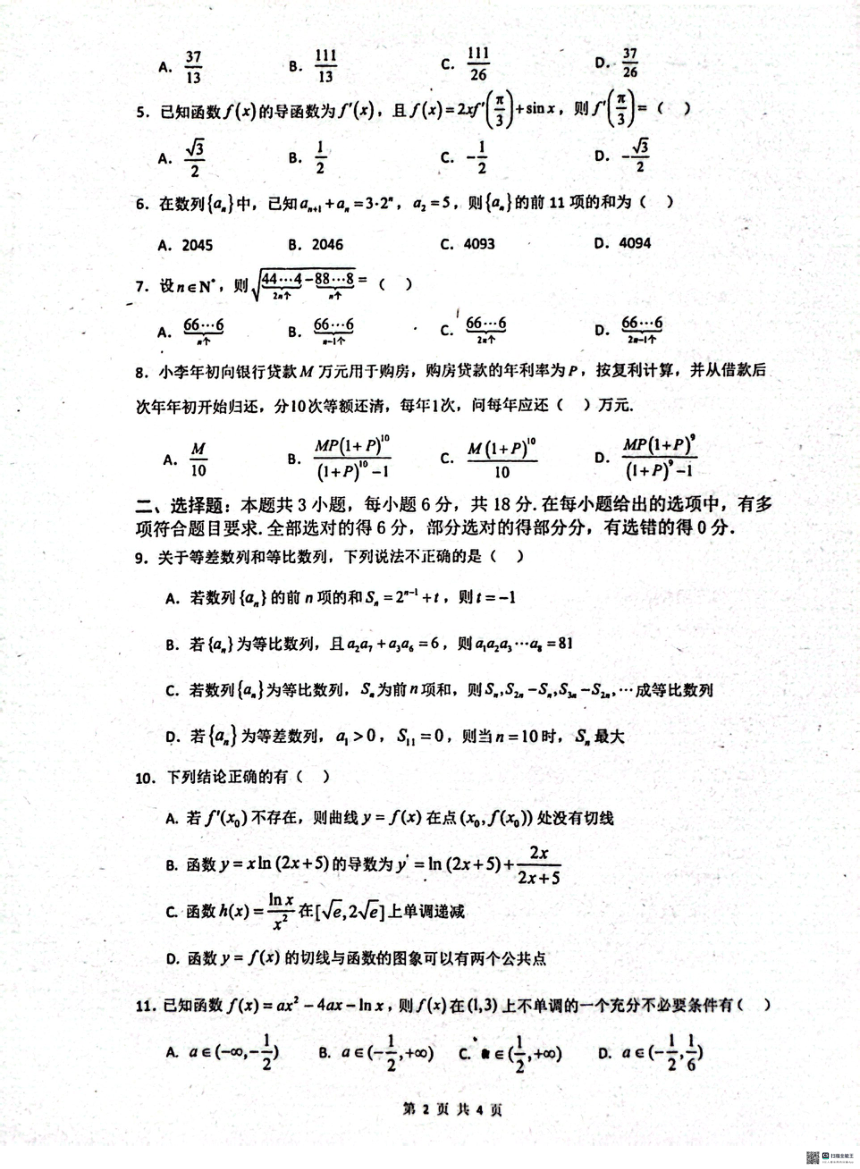 A. 37/13 B. 111/13 C. 111/26 D. 37/26
5. 已知函数 f(x) 的导函数为 f'(x)，且 f(x)=2xf'(π/3)+sin x，则 f'(π/3)=（ ）
A. √3/2 B. 1/2 C. -1/2 D. -√3/2
6. 在数列{aₙ}中，已知 aₙ₊₁+aₙ=3·2ⁿ，a₂=5，则{aₙ}的前 11 项的和为（ ）
A. 2045 B. 2046 C. 4093 D. 4094
7. 设 n∈N*，则 √(44…4（2n个）-88…8（n个）)=（ ）
A. 66…6（n个） B. 66…6（n-1个） C. 66…6（2n个） D. 66…6（2n-1个）
8. 小李年初向银行贷款 M 万元用于购房，购房贷款的年利率为 P，按复利计算，并从借款后
次年年初开始归还，分10次等额还清，每年1次，问每年应还（ ）万元.
A. M/10 B. MP(1+P)¹⁰/((1+P)¹⁰-1) C. M(1+P)¹⁰/10 D. MP(1+P)⁹/((1+P)⁹-1)
二、选择题：本题共 3 小题，每小题 6 分，共 18 分. 在每小题给出的选项中，有多
项符合题目要求. 全部选对的得 6 分，部分选对的得部分分，有选错的得 0 分.
9. 关于等差数列和等比数列，下列说法不正确的是（ ）
A. 若数列{aₙ}的前 n 项的和 Sₙ=2ⁿ⁻¹+t，则 t=-1
B. 若{aₙ}为等比数列，且 a₂a₇+a₃a₆=6，则 a₁a₂a₃…a₈=81
C. 若数列{aₙ}为等比数列，Sₙ为前 n 项和，则 Sₙ,S₂ₙ-Sₙ,S₃ₙ-S₂ₙ,…成等比数列
D. 若{aₙ}为等差数列，a₁>0，S₁₁=0，则当 n=10 时，Sₙ最大
10. 下列结论正确的有（ ）
A. 若 f'(x₀) 不存在，则曲线 y=f(x) 在点 (x₀,f(x₀)) 处没有切线
B. 函数 y=xln(2x+5) 的导数为 y'=ln(2x+5)+2x/(2x+5)
C. 函数 h(x)=ln x/x² 在[√e,2√e]上单调递减
D. 函数 y=f(x) 的切线与函数的图象可以有两个公共点
11. 已知函数 f(x)=ax²-4ax-ln x，则 f(x) 在(1,3)上不单调的一个充分不必要条件有（ ）
A. a∈(-∞,-1/2) B. a∈(-1/2,+∞) C. a∈(1/2,+∞) D. a∈(-1/2,1/6)
第 2 页 共 4 页
扫描全能王